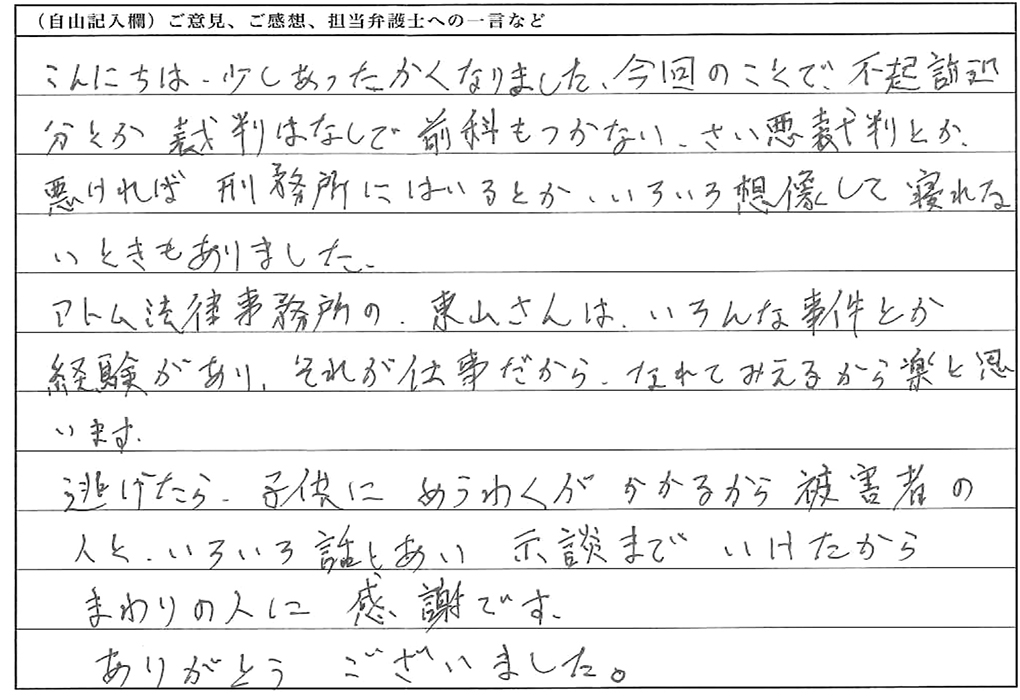 （自由記入欄）ご意見、ご感想、担当弁護士への一言など
こんにちは、少しあったかくなりました、今回のことで、不起訴処
分とか 裁判はなしで 前科もつかない、さい悪裁判とか、
悪ければ 刑務所にはいるとか、いろいろ想像して寝れな
いときもありました、
アトム法律事務所の、東山さんは、いろんな事件とか
経験があり、それが仕事だから、なれてみえるから楽と思
います、
逃げたら、子供に めうわくが かかるから 被害者の
人と、いろいろ話しあい 示談まで いけたから
まわりの人に 感謝です、
ありがとう ございました。